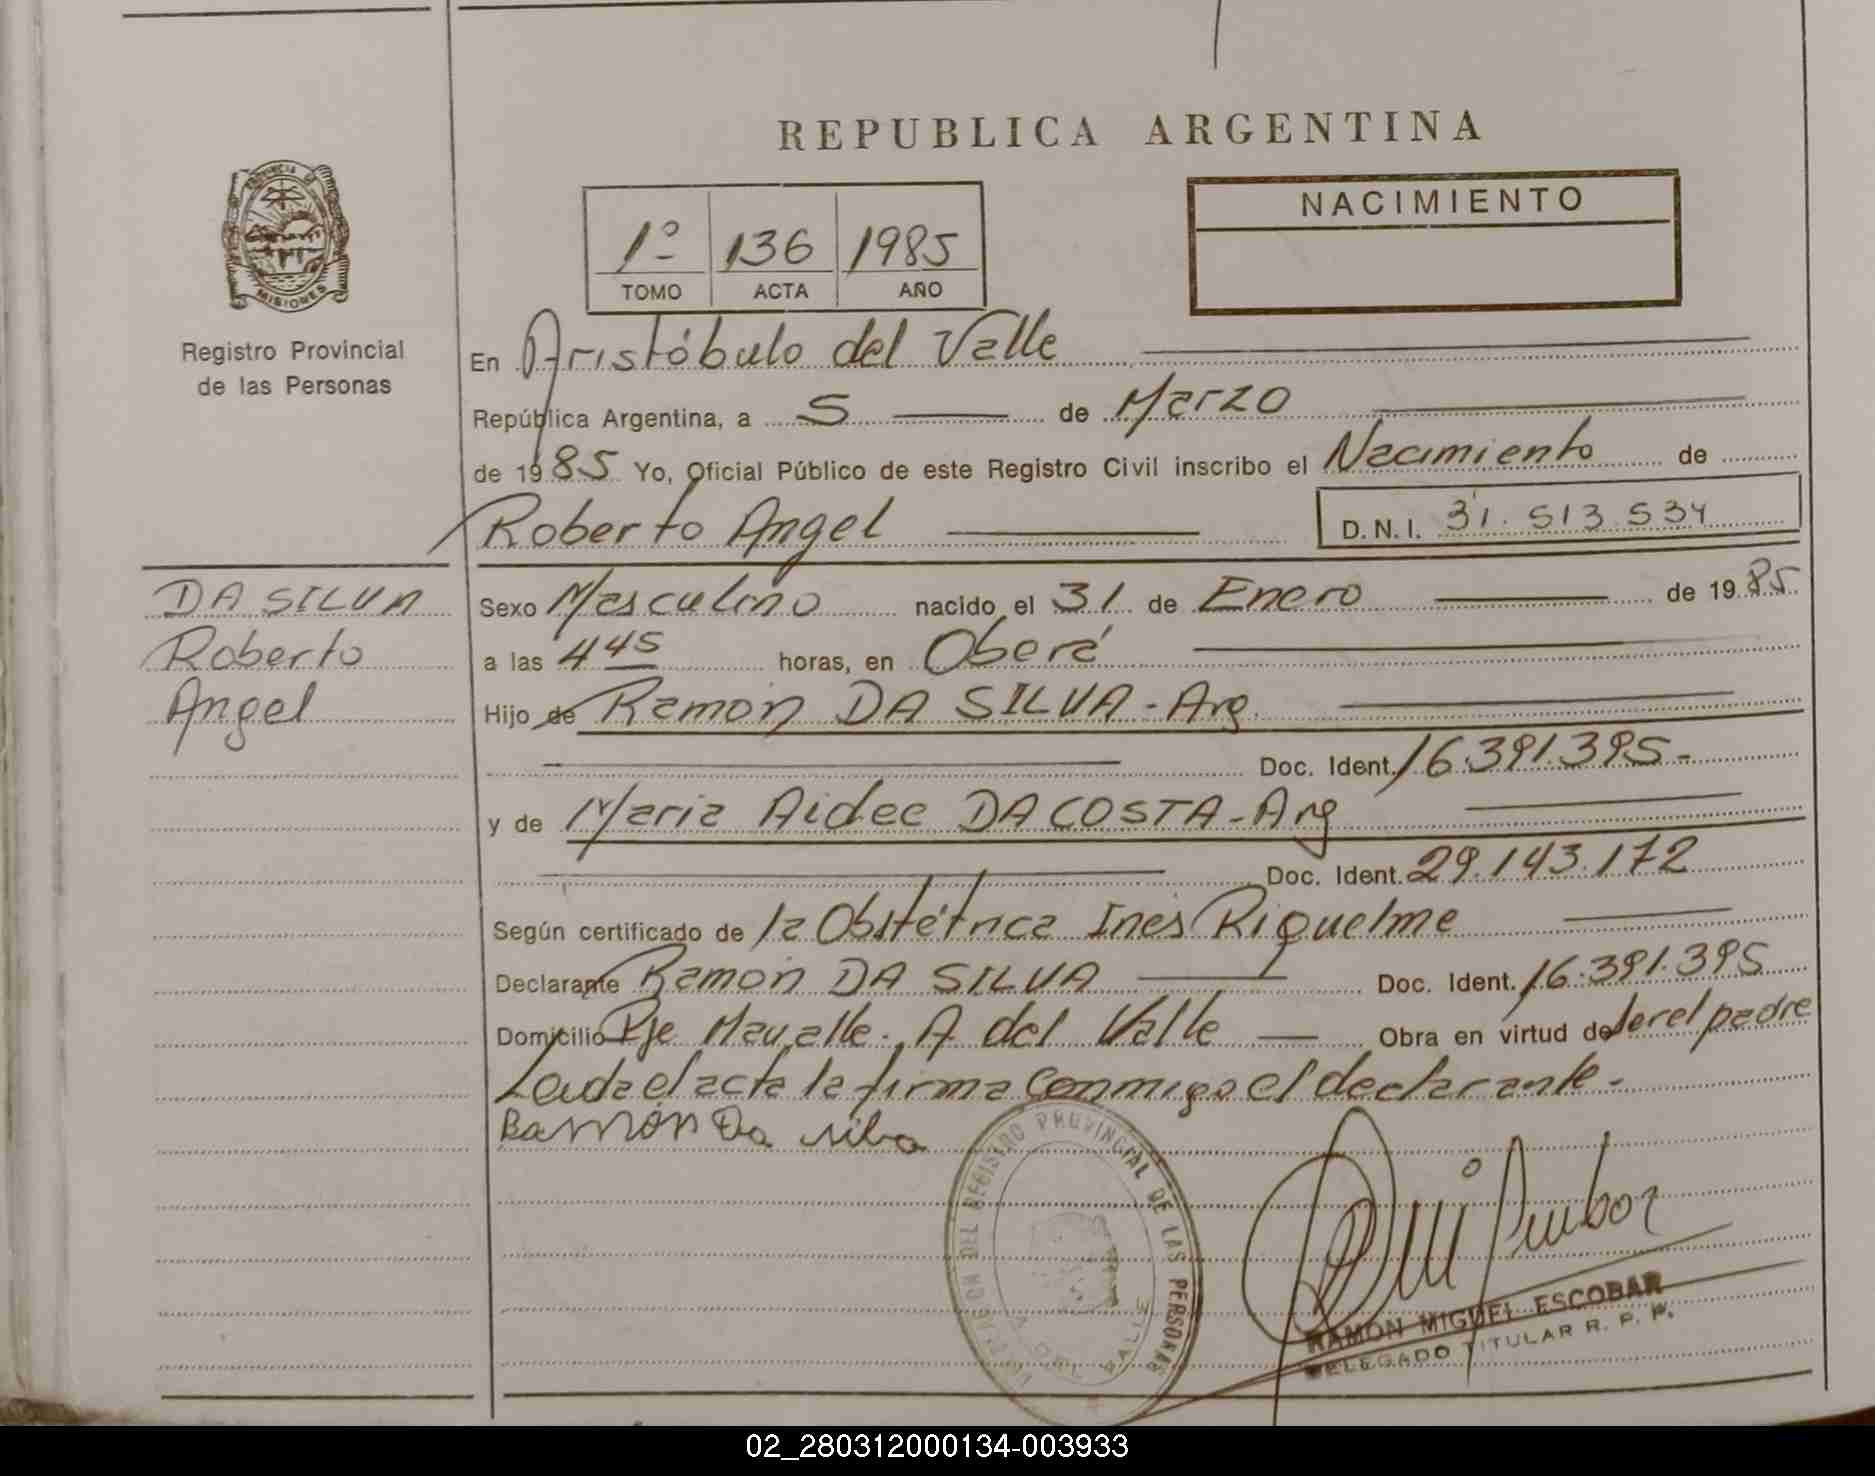 REPUBLICA ARGENTINA
PROVINCIA DE
MISIONES
Registro Provincial
de las Personas
1º 136 1985
TOMO ACTA AÑO
NACIMIENTO
En Aristóbulo del Valle
República Argentina, a 5 de Marzo
de 1985 Yo, Oficial Público de este Registro Civil inscribo el Nacimiento de
Roberto Angel D.N.I. 31.513.534
DA SILVA
Roberto
Angel
Sexo Masculino nacido el 31 de Enero de 1985
a las 4 45 horas, en Oberá
Hijo de Ramón DA SILVA - Arg.
Doc. Ident. 16.391.395-
y de Maria Aidee DA COSTA - Arg
Doc. Ident. 29.143.172
Según certificado de la Obstétrica Inés Riquelme
Declarante Ramón DA SILVA Doc. Ident. 16.391.395
Domicilio Pje A del Valle Obra en virtud de ser el padre
Leida el acta la firma conmigo el declarante.
Ramón Da silva
DEL REGISTRO PROVINCIAL DE LAS PERSONAS
DEL VALLE
RAMON MIGUEL ESCOBAR
DELEGADO TITULAR R. P. P.
02_280312000134-003933